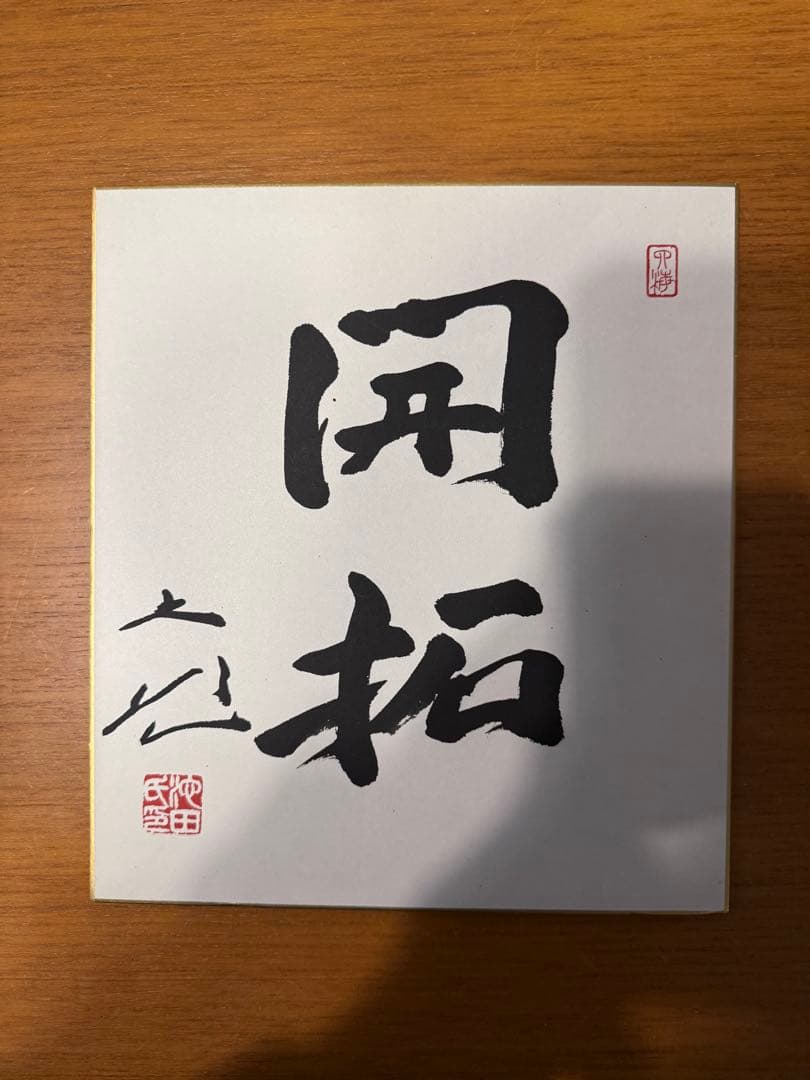 開拓
大作
池田氏印